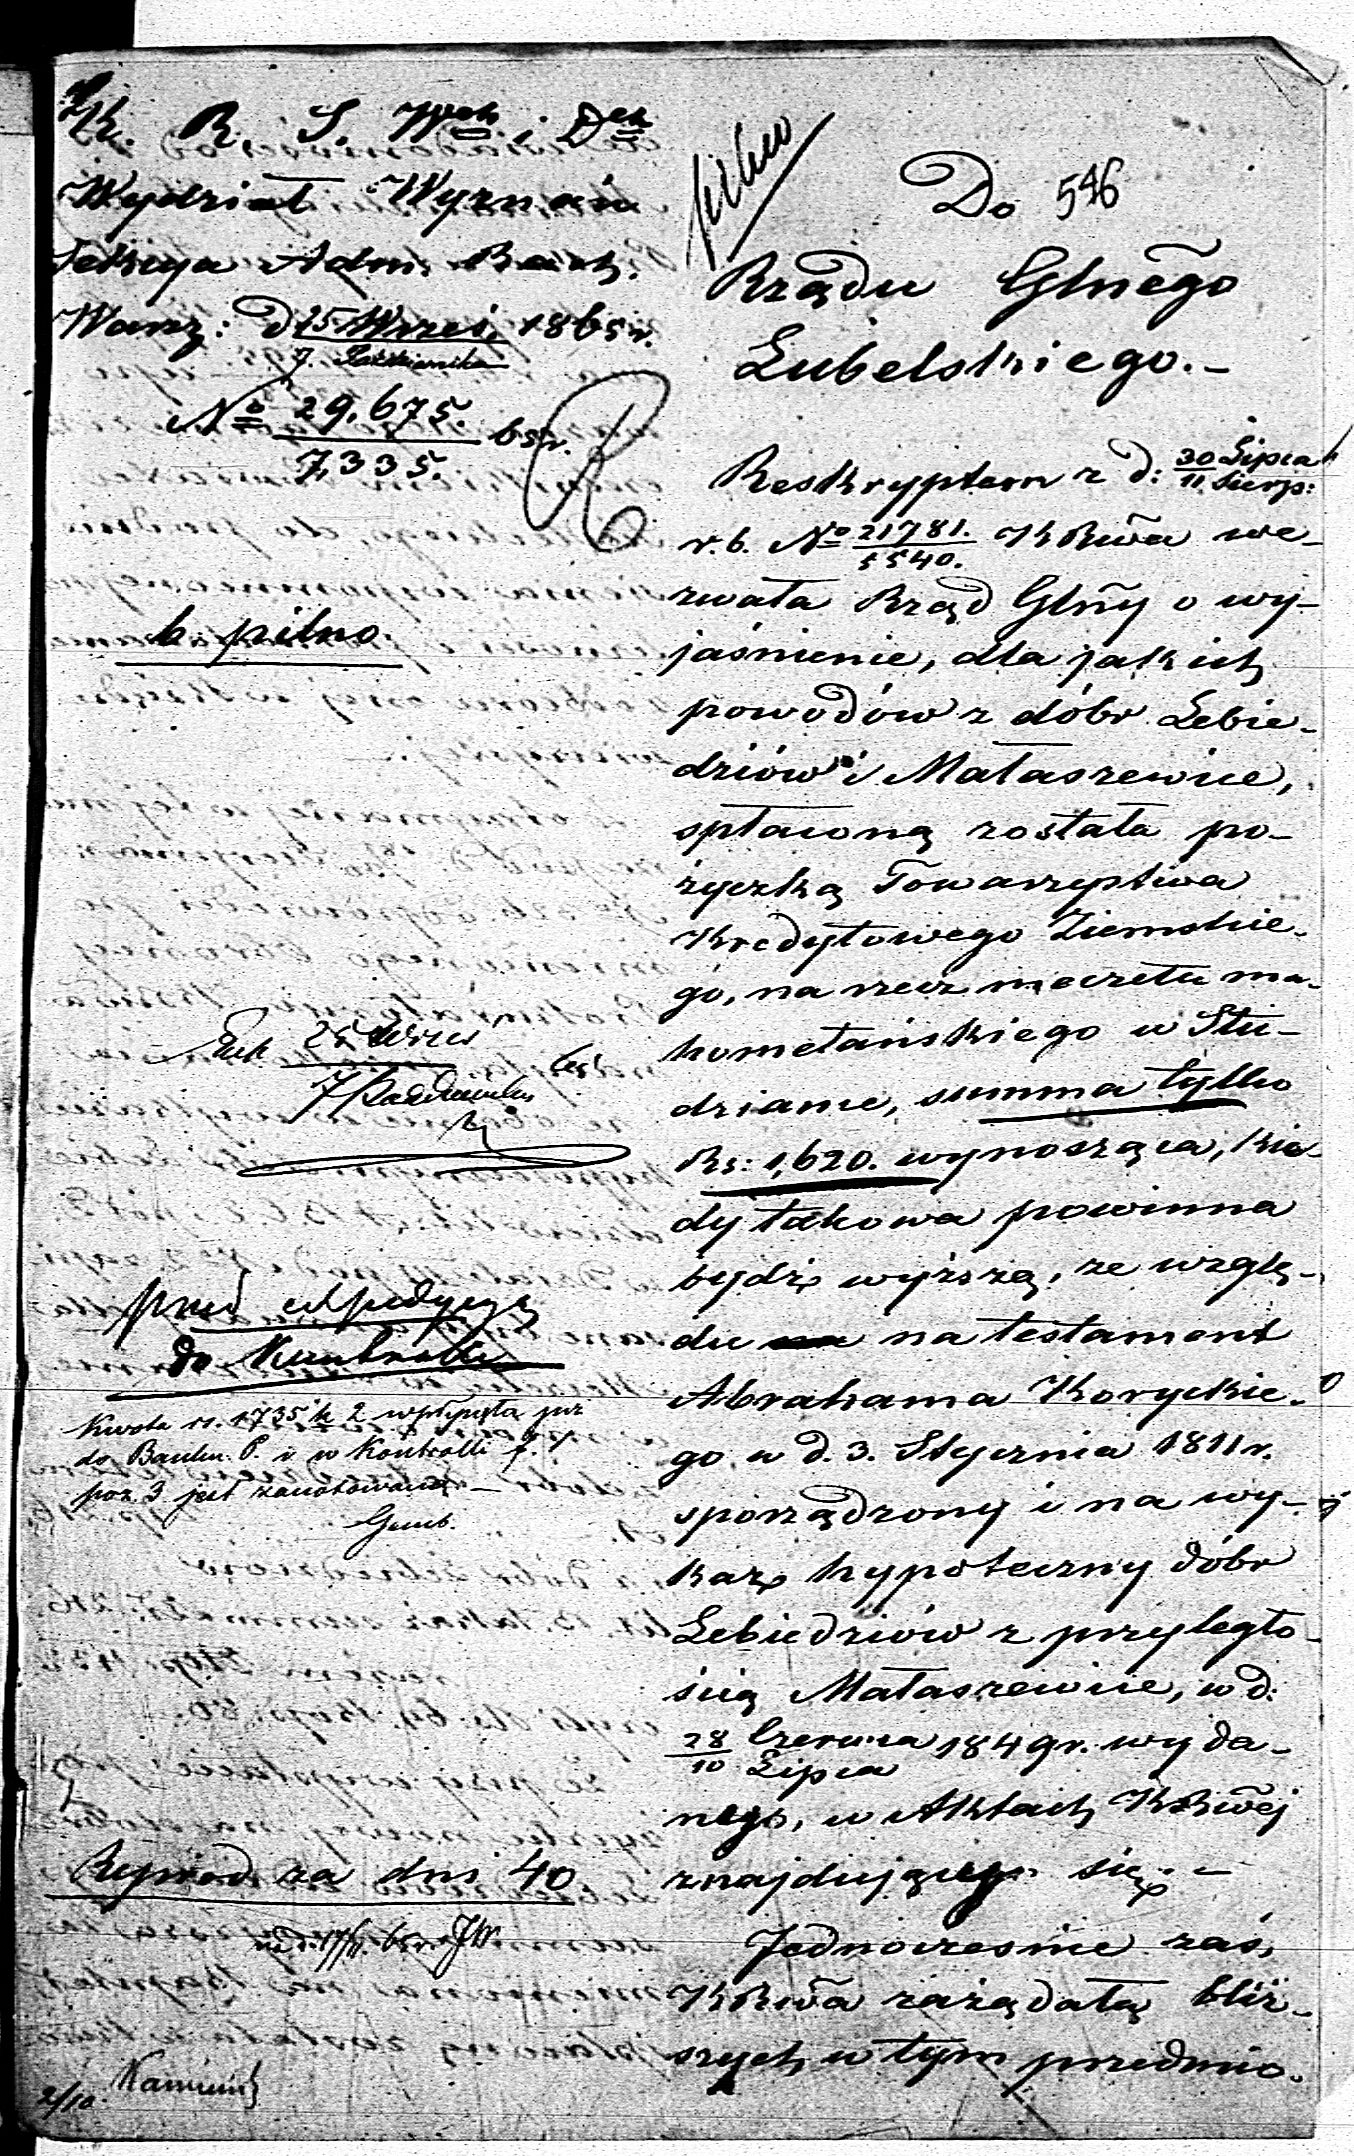 K. R. S. Wch i Dch
Wydział Wyznań
Sekcya Adm. Rach.
Warsz: d 25 Wrześ. 1865 r.
7. Października
No 29,675. 65 r.
7,335.
b. pilno
Exp. 25 Wrześ 65
7 Października
przed expedycyą
do Kontrolli
Kwota rs. 1735 k 2 wpłynęła już
do Banku P. i w Kontrolli
poz. 3 jest zanotowana
Reprod. za dni 40
2/10.
pilno
Do 546
Rządu Glnego
Lubelskiego.-
Reskryptem z d: 30 Lipca
11 Sierp:
r. b. No 21781. KRwa we-
5540.
zwała Rząd Glny o wy-
jaśnienie, dla jakich
powodów z dóbr Lebie-
dziów i Małaszewice,
spłaconą została po-
życzką Towarzystwa
Kredytowego Ziemskie-
go, na rzecz meczetu ma-
hometańskiego w Stu-
dziance, summa tylko
Rs: 1,620. wynosząca, kie-
dy takowa powinna
bydź wyższą, ze wzglę-
du na testament
Abrahama Koryckie-
go w d. 3. Stycznia 1811 r.
sporządzony i na wy-
kaz hypoteczny dóbr
Lebiedziów z przyległo-
ścią Małaszewice, w d:
28 Czerwca 1849 r. wyda-
10 Lipca
nego, w Aktach KRwej
znajdującego się.-
Jednocześnie zaś,
KRwa zażądała bliż-
szych w tym przedmio-